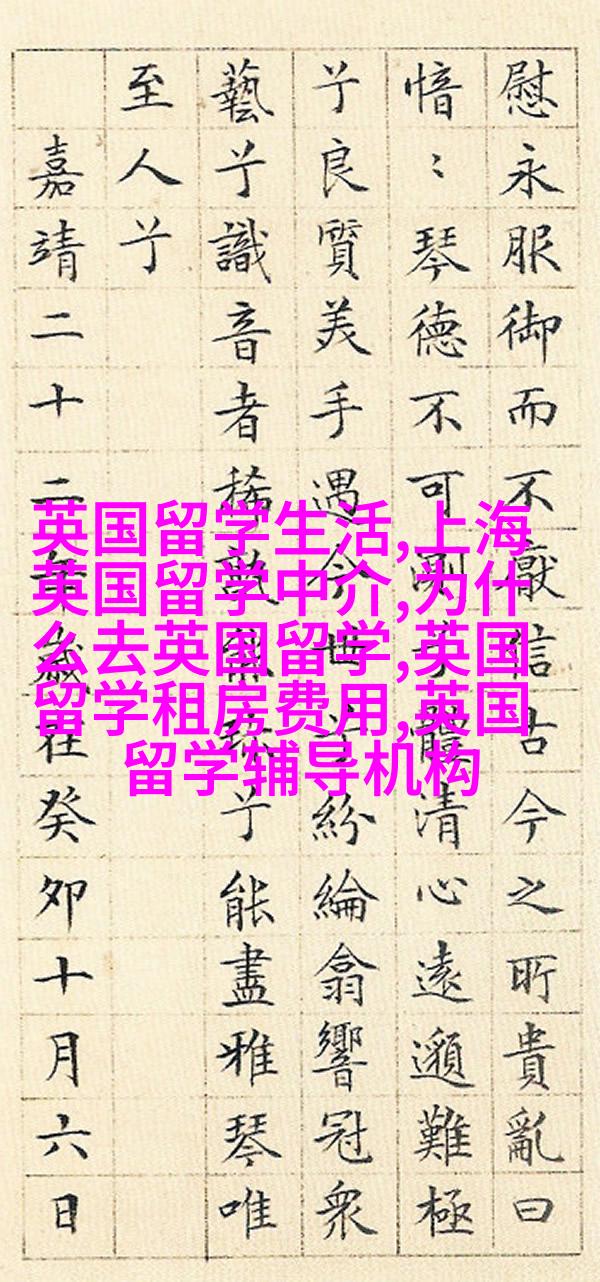 慰永服御而不厭信古今之所貴亂曰
愔〻琴德不可測兮體清心遠邈難極
兮良質美手遇今世兮紛綸翕響冠衆
藝兮識音者稀孰能珍兮能盡雅琴唯
至人兮
嘉靖二十二年歲在癸卯十月六日
英国留学生活,上海
英国留学中介,为什
么去英国留学,英国
留学租房费用,英国
留学辅导机构